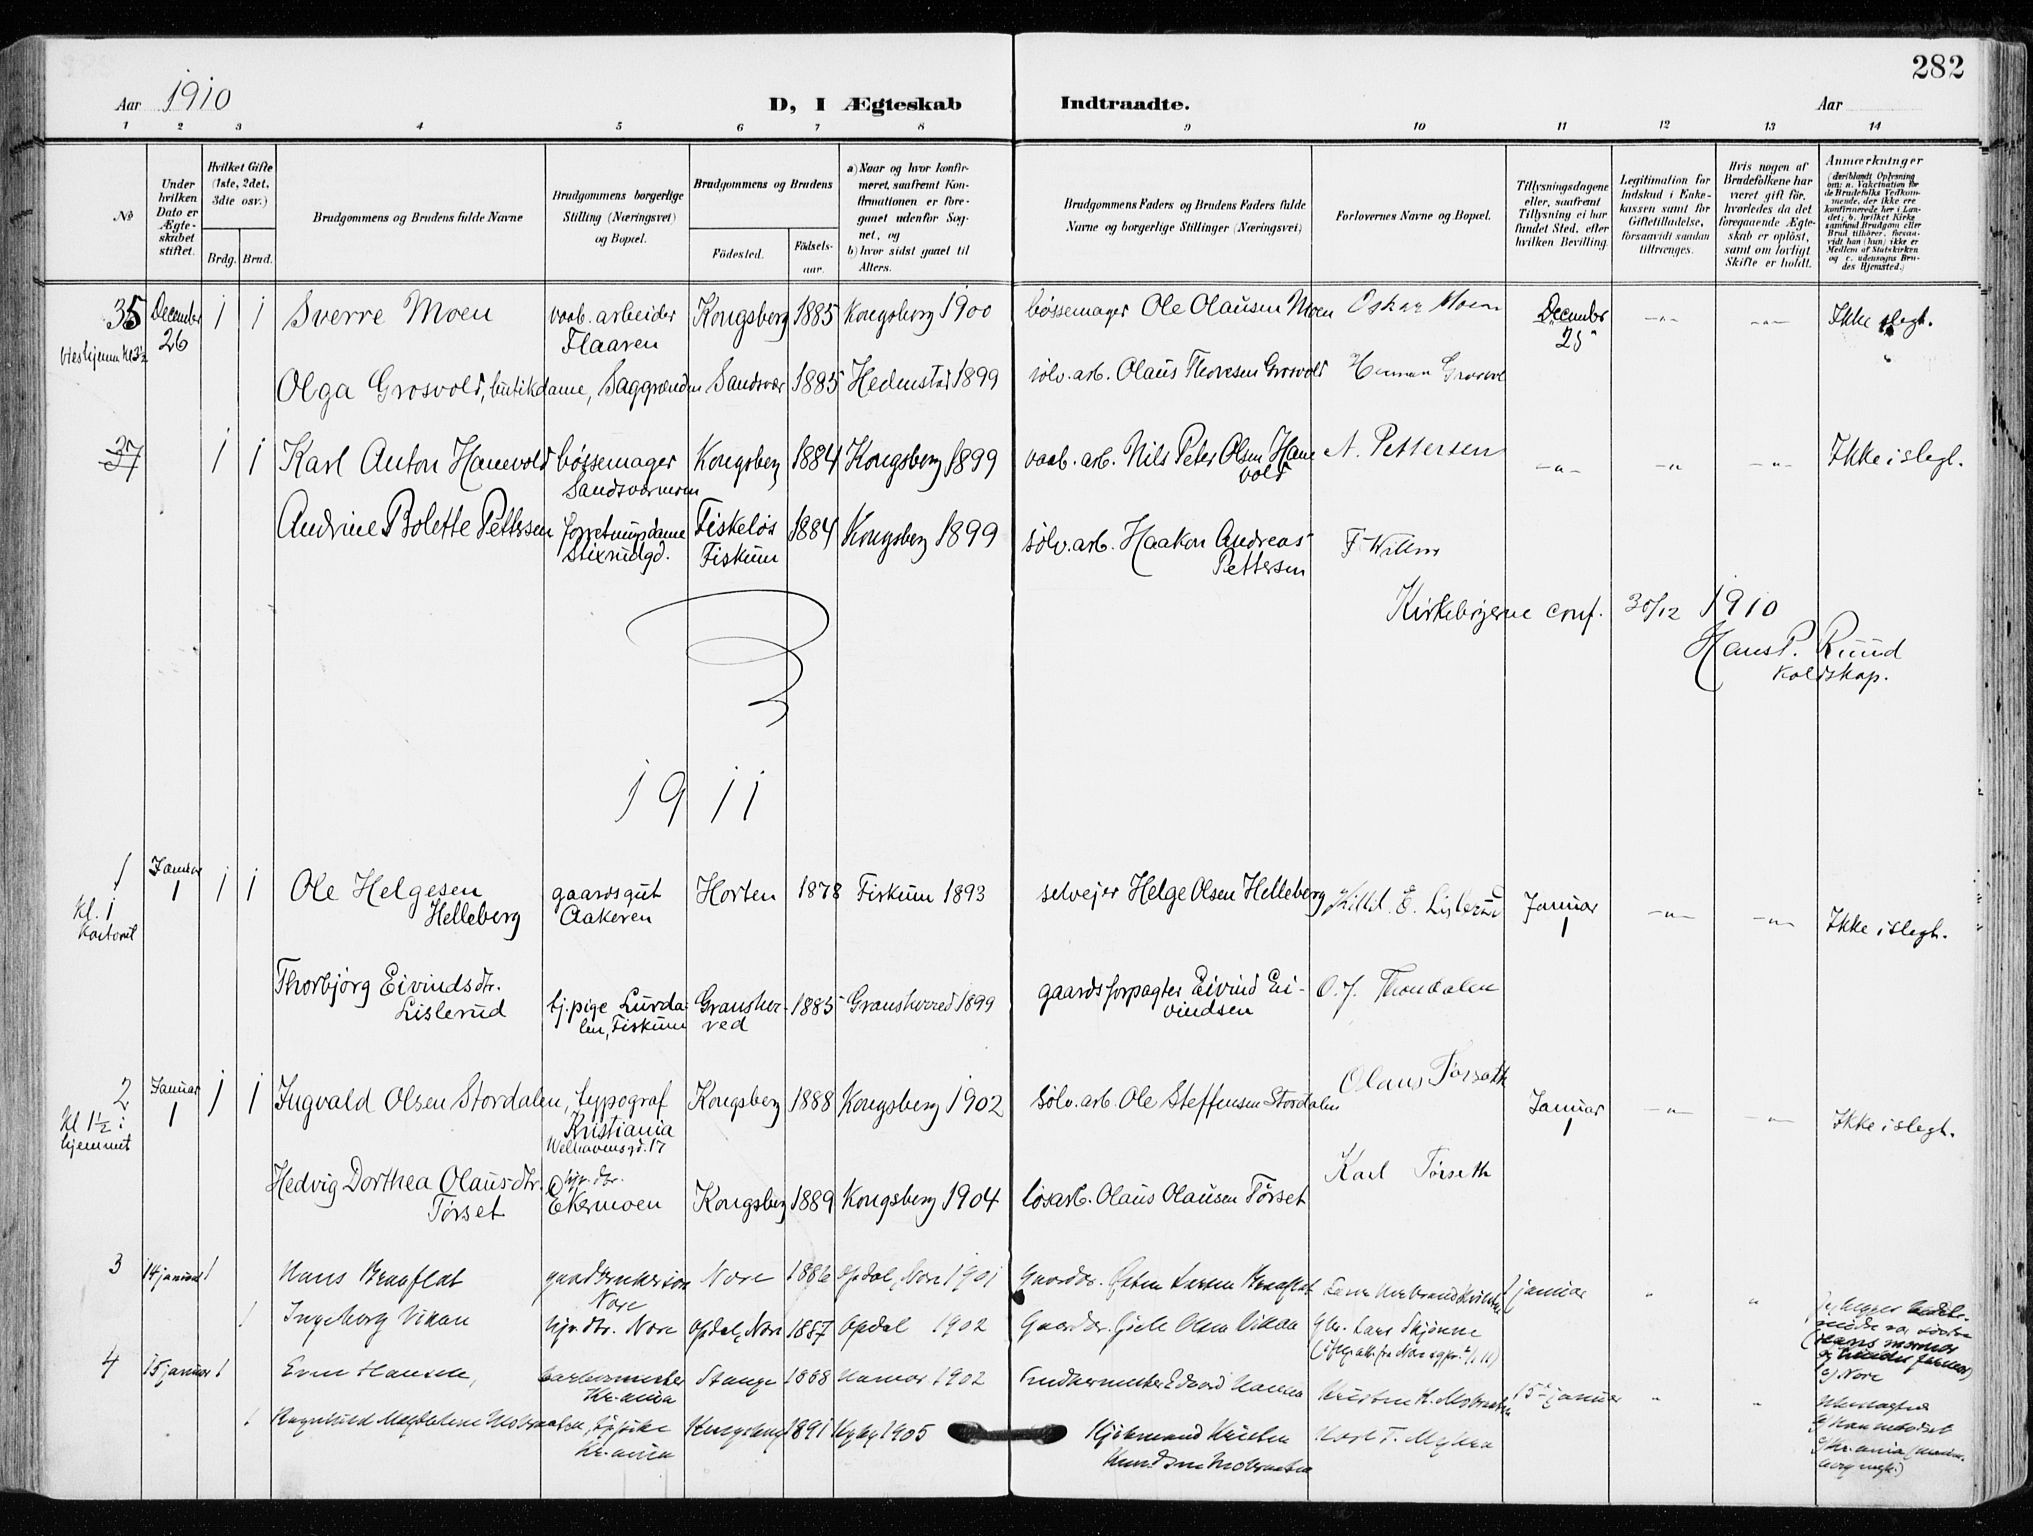 282
Aar 1910
D, I Ægteskab Indtraadte.
Aar
1 2 3 4 5 6 7 8 9 10 11 12 13 14
No
Under hvilken Dato er Ægteskabet stiftet.
Hvilket Gifte (1ste, 2det, 3die osv.)
Brdg. Brud.
Brudgommens og Brudens fulde Navne
Brudgommens borgerlige Stilling (Næringsvei) og Bopæl.
Brudgommens og Brudens
Fødested. Fødselsaar.
a) Naar og hvor konfirmeret, saafremt Konfirmationen er foregaaet udenfor Sognet, og
b) hvor sidst gaaet til Alters.
Brudgommens Faders og Brudens Faders fulde Navne og borgerlige Stillinger (Næringsvei)
Forlovernes Navne og Bopæl.
Tillysningsdagene eller, saafremt Tillysning ei har fundet Sted, efter hvilken Bevilling.
Legitimation for Indskud i Enkekassen samt for Giftetilladelse, forsaavidt saadan tiltrænges.
Hvis nogen af Brudefolkene har været gift før, hvorledes da det foregaaende Ægteskab er opløst, samt om lovligt Skifte er holdt.
Anmærkninger (deriblandt Oplysning om: a. Vakcination for de Brudefolks Vedkommende, der ikke ere konfirmerede her i Landet; b. hvilket Kirkesamfund Brudgom eller Brud tilhører, forsaavidt han (hun) ikke er Medlem af Statskirken og c. udensogns Brudes Hjemsted.)
35 December 26 1 1 Sverre Moen vaab. arbeider Flaaren Kongsberg 1885 Kongsberg 1900 bøssemager Ole Olausen Moen Oskar Moen December 25 -"- -"- Ikke slegt.
Olga Grosvold, butikdame, Saggrænden Sandsvær 1885 Hedenstad 1899 sølv. arb. Olaus Thoresen Grosvold Herman Grosvol
37 1 1 Karl Anton Hanevold bøssemager Sandsværmoen Kongsberg 1884 Kongsberg 1899 vaab. arb. Nils Peter Olsen Hanevold A. Pettersen -"- -"- -"- Ikke i slegt.
Andrine Bolette Pettersen forretningsdame Stixrudgd. Fiskeløs Fiskum 1884 Kongsberg 1899 sølv. arb. Haakon Andreas Pettersen F.
Kirkebøgerne conf. 30/12 1910
Hans P. Ruud
1911
1 Kl. 1 Januar 1 1 1 Ole Helgesen Helleberg gaardsgut Aakeren Horten 1878 Fiskum 1893 selvejer Helge Olsen Helleberg Killil. E. Lislerud Januar 1 -"- -"- Ikke i slegt.
Thorbjørg Eivindsdtr. Lislerud tj. pige Lurdalen, Fiskum Gransherred 1885 Gransherred 1899 gaardsforpagter Eivind Eivindsen O. J. Thondalen
2 Kl 1½ i hjemmet Januar 1 1 1 Ingvald Olsen Stordalen, typograf Kristiania Welhavensgd. 17 Kongsberg 1888 Kongsberg 1902 Sølv. arb. Ole Steffensen Stordalen Olaus Torseth Januar 1 -"- -"- Ikke i slegt.
Hedvig Dorthea Olausdtr. Tørset hjv. dtr. Ekermoen Kongsberg 1889 Kongsberg 1904 løsarb. Olaus Olausen Tørset Karl Tørseth
3 14 januar 1 Hans Braaflat Nore 1886 Opdal, Nore 1901 Gaardbr. Østen Larsen Braaflat januar " "
1 Ingeborg Vikan hjv. dtr. Nore Opdal, Nore 1887 Opdal 1902 Gaardbr. Olsen Vikan Gbr. Lars Skjønne
4 15 januar 1 Even Hansen, Kr.ania Stange 1888 Hamar 1902 15 januar " "
1 Ragnhild Magdalene Kr.ania Kongsberg 1891 1905